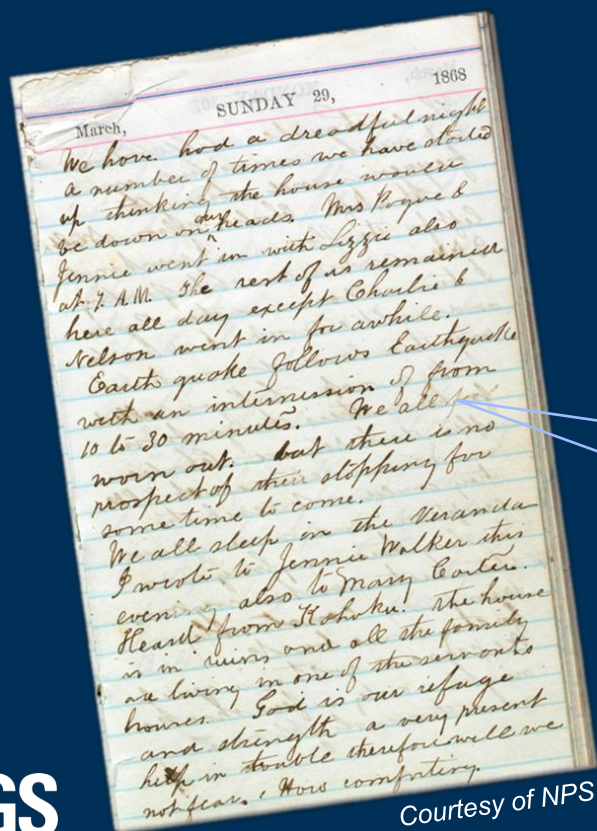 March,
SUNDAY 29,
1868
We have had a dreadful night
a number of times we have started
up thinking the house would
be down on our heads. Mrs Pogue &
Jennie went in with Lizzie also
at 7 A.M. The rest of us remained
here all day except Charlie &
Nelson went in for awhile.
Earth quake follows Earthquake
with an intermission of from
10 to 30 minutes. We all
worn out. but there is no
prospect of their stopping for
some time to come.
We all sleep in the Veranda
I wrote to Jennie Walker this
evening also to Mary Carter.
Heard from Kahuku. the house
is in ruins and all the family
are living in one of the servants
houses. God is our refuge
and strength a very present
help in trouble therefore will we
not fear. How comforting.
GS
Courtesy of NPS